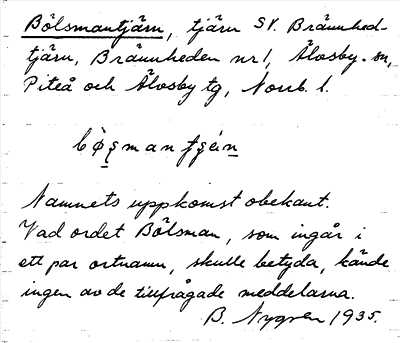 Bölsmantjärn, tjärn SV. Brännhed-
tjärn, Brännheden nr 1, Älvsby sn,
Piteå och Älvsby tg, Norrb. l.
Namnets uppkomst obekant.
Vad ordet Bölsman, som ingår i
ett par ortnamn, skulle betyda, kände
ingen av de tillfrågade meddelarna.
B. Nygren 1935.